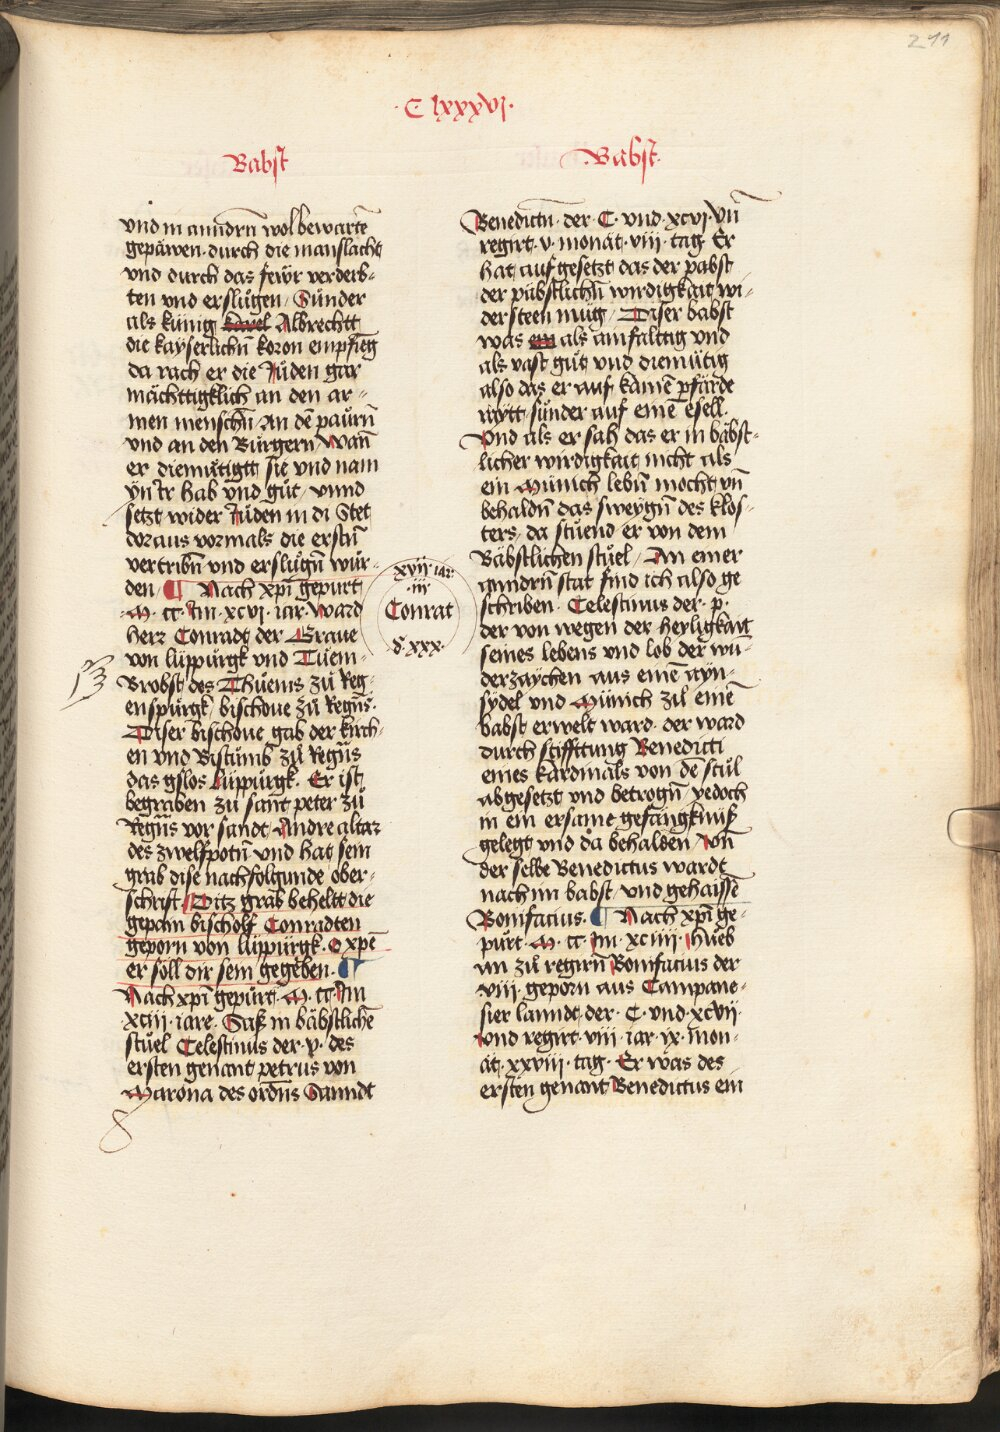 211
·C· lxxxvj·
Babst
Babst·
vnd in anndrn̄ wol bewartē
gepäwen· durch die manslacht
vnd durch das fewr verderb-
ten vnd erslůgen/ Sunder
als künig Albrechtt
die kayserlichn̄ koron empfieng
da rach er die Juden gar
mächttigklich an den ar-
men menschn̄ an dē paurn̄
vnd an den Bürgern/ wan̄
er diemütigtt sie vnd nam
yn ir hab vnd gůt/ vnnd
setzt wider Juden in di Stet
doraus vormals die erstn̄
vertribn̄ vnd erslůgn̄ wur-
den ¶ Nach xp̄i gepurt
·M· cc Jm xcvi· iar· ward
herr Conradt der Graue
von lüppurgk vnd Tuem-
Brobst des Thuems zu Reg-
enspurgk/ bischoue zů Regn̄s·
Diser bischoue gab der kirch-
en vnd Bistumb zů Regn̄s
das gslos lüppurgk· Er ist
begraben zů sant peter zů
Regn̄s vor sandt Andre altar
des zwelfpotn̄ vnd hat sein
grab dise nachfolgunde ober-
schrift/ Ditz grab beheltt die
gepain bischolf Conradten
geporn von lüppurgk· O xp̄e
er soll dir sein gegeben· ¶
Nach xp̄i gepurt· M· cc Jm
xciii· iare· Saß in bäbstlichē
stuel Celestinus der· v· des
ersten genant petrus von
Marona des ordn̄s Sanndt
xvij· iar·
·iij·
Conrat
d· xxx·
Benedictn̄· der· C· vnd· xcvi· vn̄
regirt· v· monat· viij· tag· Er
hat auf gesetzt das der pabst
der päbstlichn̄ wirdigkait wi-
dersteen mug/ Diser babst
was als ainfalttig vnd
als vast gůt vnd diemütig
also das er auf kainē pfärde
raytt/ sunder auf einē esell·
Vnd als er sah das er in bäbst-
licher wirdigkait nicht als
ein Münich lebn̄ mocht vn̄
behaldn̄ das sweygn̄ des klos-
ters/ da stuend er von dem
Bäbstlichen stuel/ An einer
anndrn̄ stat find ich also ge
schriben· Celestinus der· p·
der von wegen der heyligkait
seines lebens vnd lob der wū-
derzaychen aus einē ayn-
sydel vnd Münich zů einē
babst erwelt ward· der ward
durch stifftung Benedicti
eines kardinals von dē stůl
abgesetzt vnd betrogn̄/ yedoch
in ein ersame gefängknuß
gelegt vnd da behalden/ Von
der selbe Benedictus wardt
nach im babst/ vnd gehaissē
Bonifacius· ¶ Nach xp̄i ge-
purt· M· cc Jm· xciiij· Hueb
an zů regirn̄ Bonifacius der
viij· geporn aus Campane-
sier lanndt· der· C· vnd· xcvij·
vnd regirt· viij· iar· ix· mon-
at· xxviij· tag· Er was des
ersten genant Benedictus ein